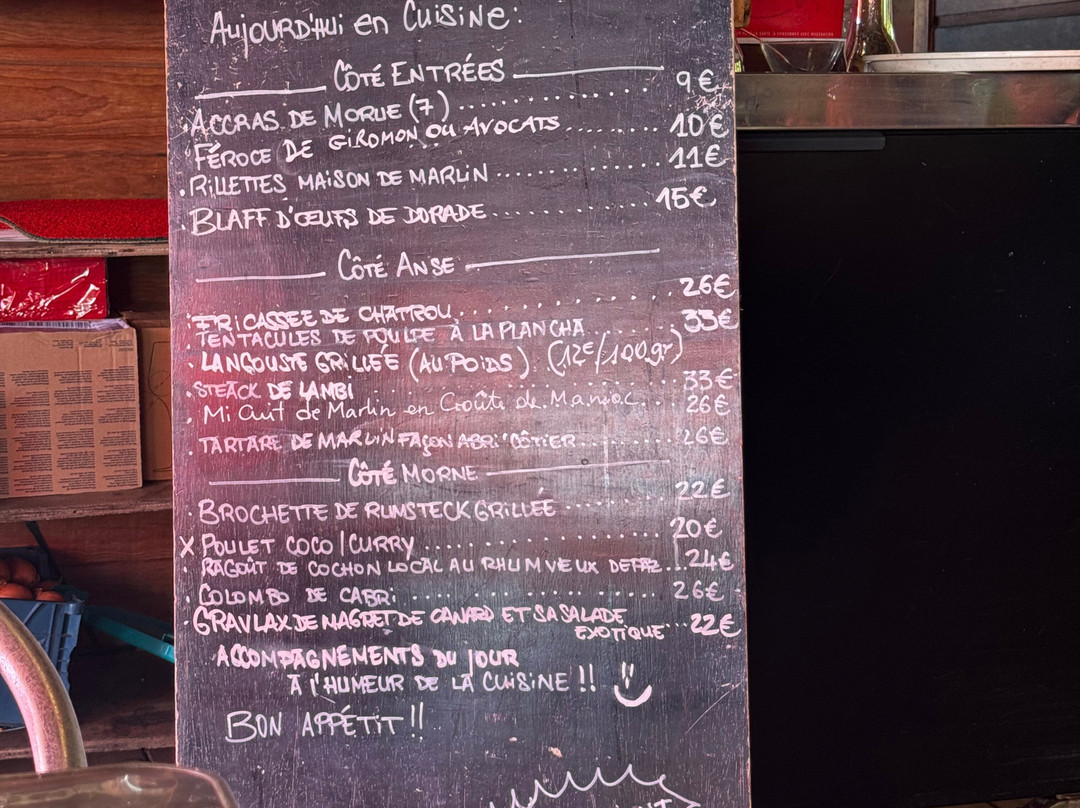 Aujourd'hui en Cuisine:
Côté Entrées 9€
.Accras de Morue (7)
.Féroce de Giromon ou Avocats 10€
.Rillettes Maison de Marlin 11€
.Blaff d'Œufs de Dorade 15€
Côté Anse
26€
.Fricassée de Chatrou
Tentacules de Poulpe à la Plancha 33€
.Langouste Grillée (au Poids). (12€/100gr)
.Steack de Lambi 33€
.Mi Cuit de Marlin en Croûte de Manioc 26€
.Tartare de Marlin Façon Abri'Côtier 26€
Côté Morne
22€
.Brochette de Rumsteck Grillée
X Poulet Coco/Curry 20€
.Ragoût de Cochon Local au Rhum Vieux 24€
.Colombo de Cabri 26€
.Gravlax de Magret de Canard et sa Salade
Exotique 22€
Accompagnements du Jour
à l'Humeur de la Cuisine!!
Bon Appétit!!